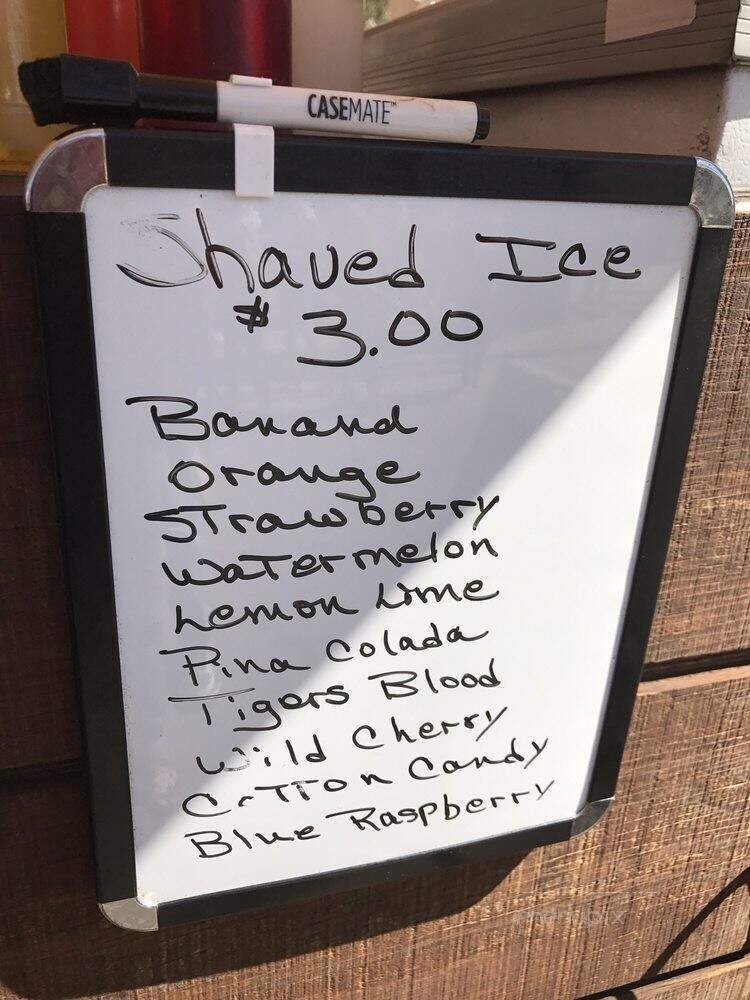 CASEMATE™
Shaved Ice
$3.00
Banana
Orange
STrawberry
WaTermelon
Lemon Lime
Pina Colada
Tigers Blood
Wild Cherry
CoTTon Candy
Blue Raspberry